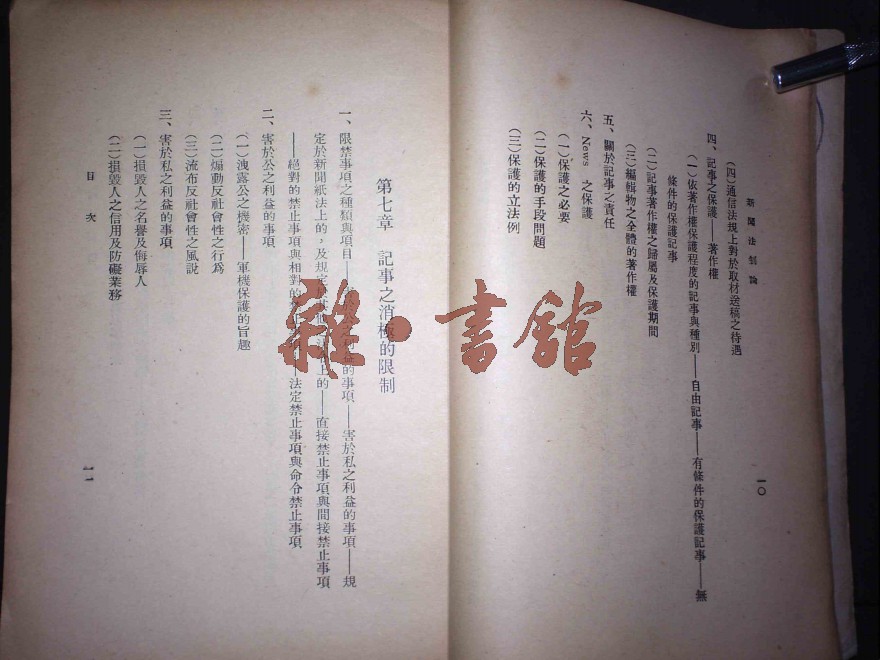 新聞法制論
(四)通信法規上對於取材送稿之待遇
四、記事之保護——著作權
(一)依著作權保護程度的記事與種別——自由記事——有條件的保護記事——無
條件的保護記事
(二)記事著作權之歸屬及保護期間
(三)編輯物之全體的著作權
五、關於記事之責任
六、News 之保護
(一)保護之必要
(二)保護的手段問題
(三)保護的立法例
一〇
第七章 記事之消極的限制
一、限禁事項之種類與項目——的事項——害於私之利益的事項——規
定於新聞紙法上的,及規定上的——直接禁止事項與間接禁止事項
——絕對的禁止事項與相對的——法定禁止事項與命令禁止事項
二、害於公之利益的事項
(一)洩露公之機密——軍機保護的旨趣
(二)煽動反社會性之行為
(三)流布反社會性之風說
三、害於私之利益的事項
(一)損毀人之名譽及侮辱人
(二)損毀人之信用及防礙業務
目次
一一
雜·書館